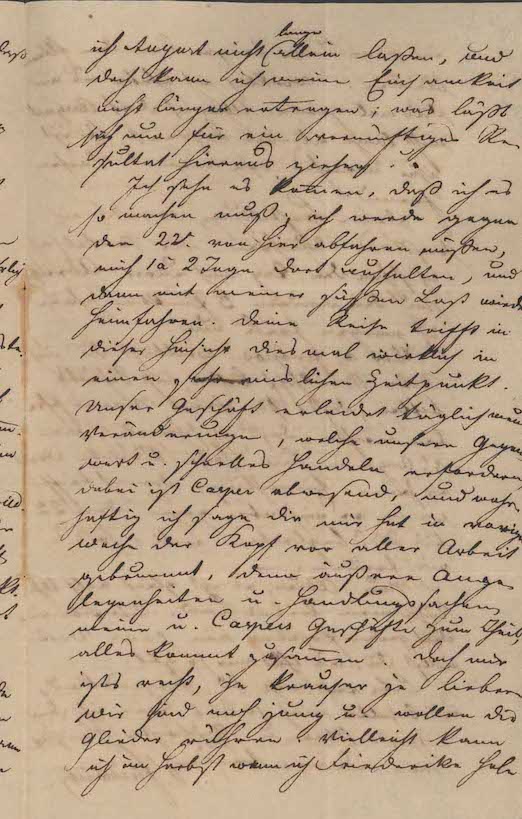 lange
ich August nicht allein laßen, und
doch kann ich meine Einsamkeit
nicht länger ertragen; was läßt
sich nun für ein vernünftiges Re-
sultat hieraus ziehen.
Ich sehe es kommen, daß ich es
so machen muß; ich werde gegen
den 22t. von hier abfahren müßen,
mich 1 à 2 Tage dort aufhalten, und
dann mit meiner süßen Last wieder
heimfahren. Deine Reise trifft in
dieser Hinsicht diesmal wirklich in
einen mislichen Zeitpunkt.
Unser Geschäft erleidet täglich neue
Veränderungen, welche unsere Gegen-
wart u. schnelles Handeln erfordern
dabei ist Casper abwesend, und wahr-
haftig ich sage dir mir hat in voriger
Woche der Kopf vor aller Arbeit
gebrummt, denn äußere Ange-
legenheiten u. Handlungssachen
meine u. Caspers Geschäfte zum Theil,
alles kommt zusammen. Doch mir
ists recht, je krauser je lieber
wir sind noch jung u. wollen die
Glieder rühren. Vielleicht kann
ich im Herbst wenn ich Friederike hole